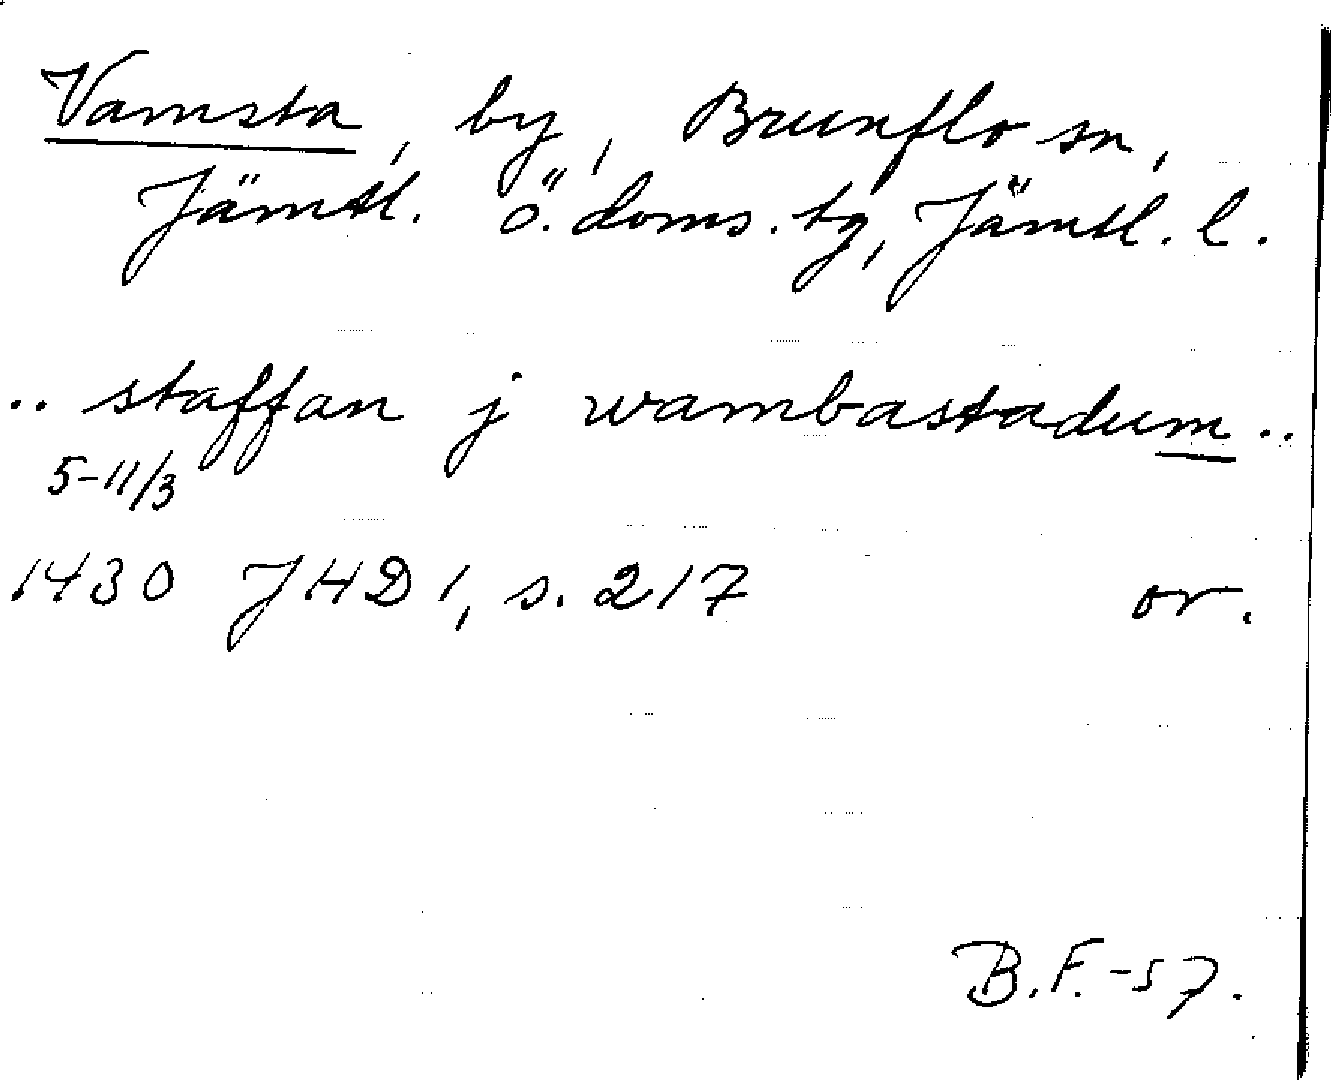 Vamsta, by, Brunflo sn,
Jämtl. ö. doms. tg, Jämtl. l.
.. staffan j wambastadum ..
5-11/3
1430 JHD 1, s. 217 or.
B.F.-57.